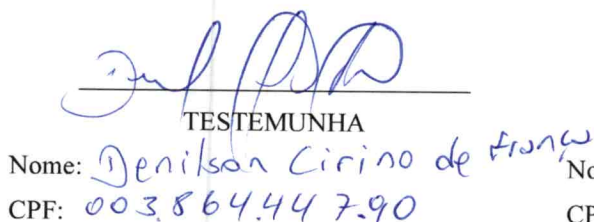 TESTEMUNHA
Nome: Denilson Cirino de França No
CPF: 003.864.447.90 CP